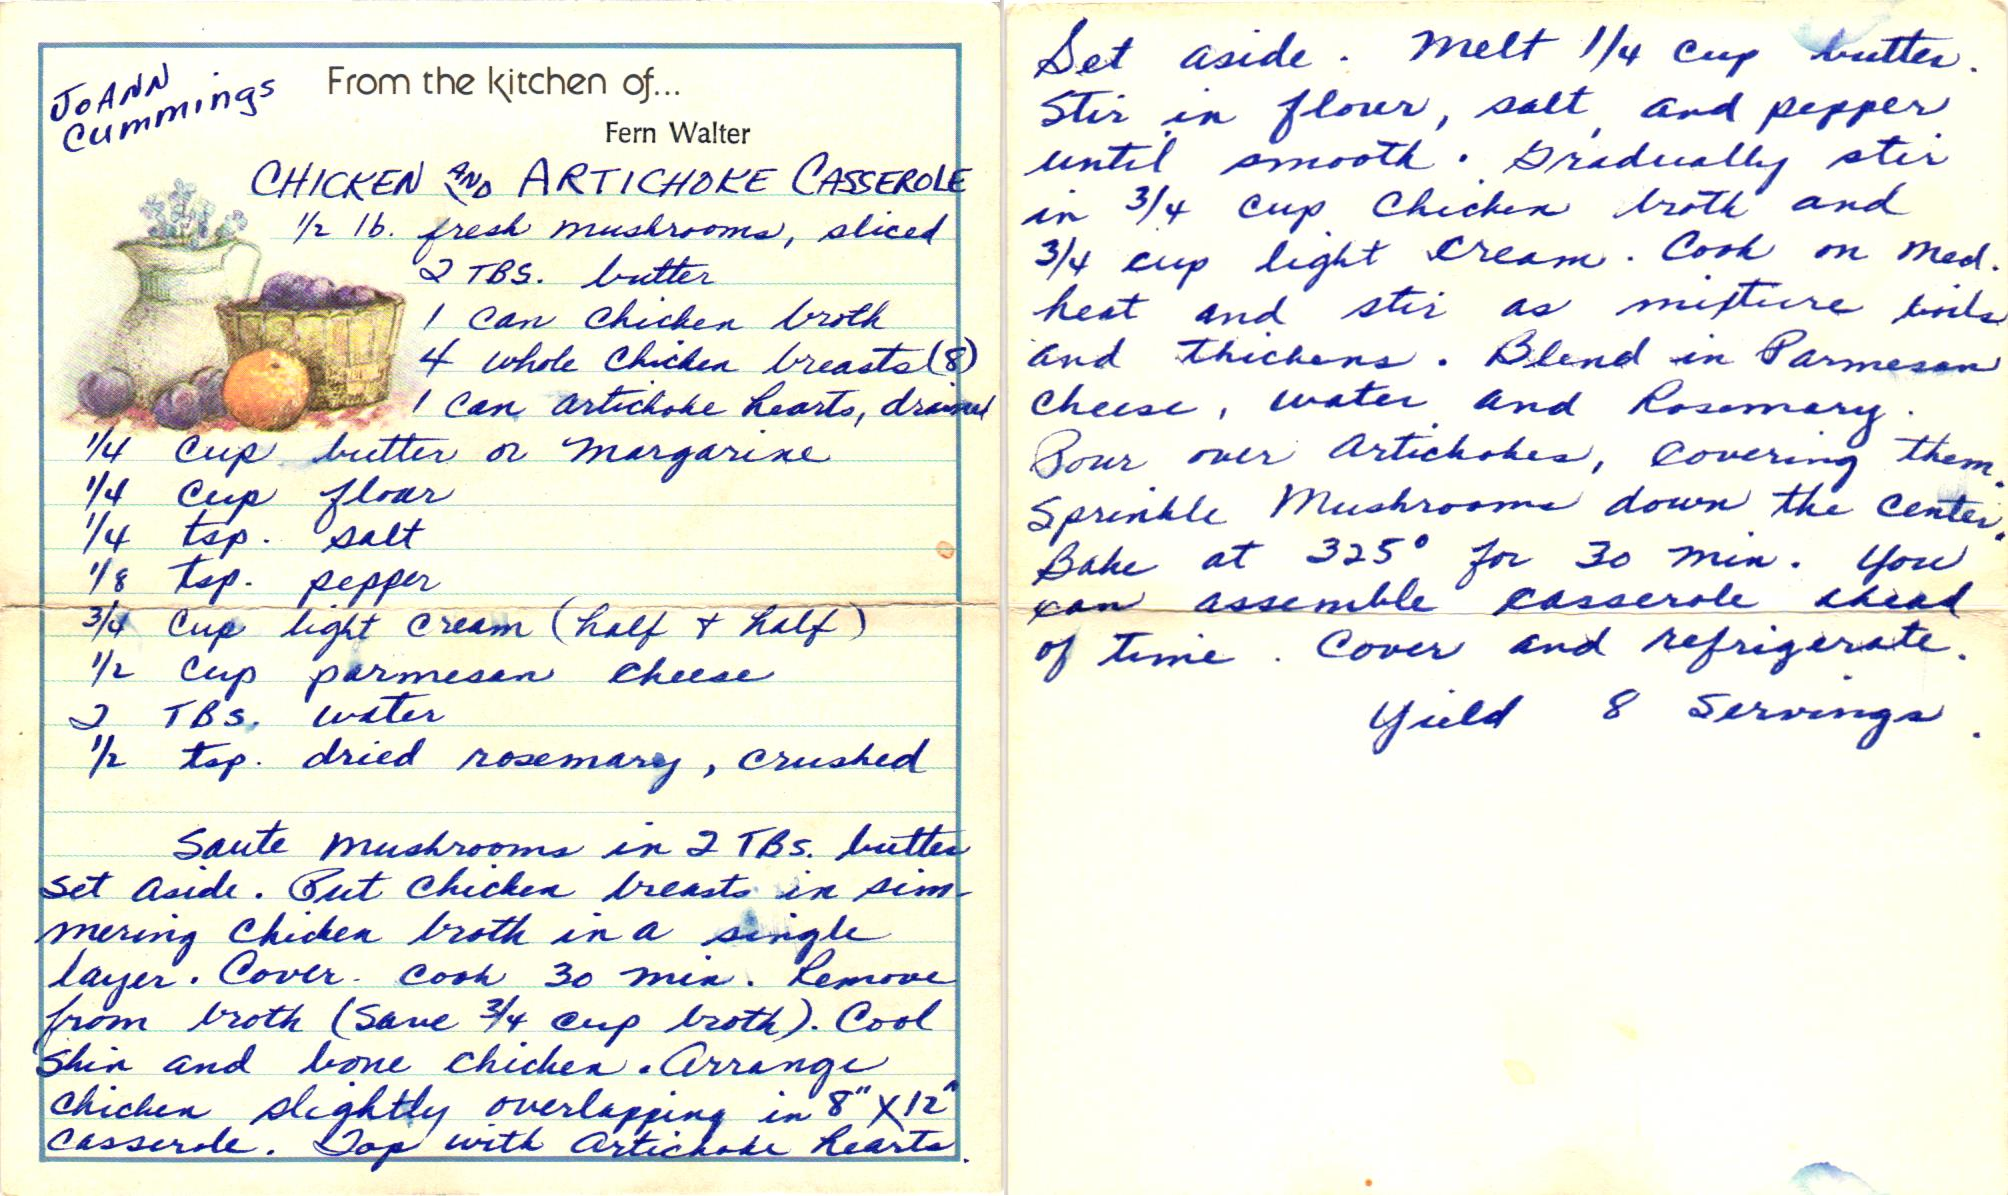 JoAnn
Cummings
From the kitchen of...
Fern Walter
CHICKEN AND ARTICHOKE CASSEROLE
1/2 lb. fresh mushrooms, sliced
2 TBS. butter
1 can chicken broth
4 whole chicken breasts (8)
1 can artichoke hearts, drained
1/4 cup butter or margarine
1/4 cup flour
1/4 tsp. salt
1/8 tsp. pepper
3/4 cup light cream (half + half)
1/2 cup parmesan cheese
2 TBS. water
1/2 tsp. dried rosemary, crushed
Saute mushrooms in 2 TBS. butter
Set aside. Put chicken breasts in sim-
mering chicken broth in a single
layer. Cover. Cook 30 min. Remove
from broth (Save 3/4 cup broth). Cool
Skin and bone chicken. Arrange
chicken slightly overlapping in 8" X 12"
casserole. Top with Artichoke hearts.
Set aside. Melt 1/4 cup butter.
Stir in flour, salt, and pepper
until smooth. Gradually stir
in 3/4 cup chicken broth and
3/4 cup light cream. Cook on med.
heat and stir as mixture boils
and thickens. Blend in Parmesan
cheese, water and Rosemary.
Pour over Artichokes, covering them.
Sprinkle Mushrooms down the center.
Bake at 325° for 30 min. You
can assemble casserole ahead
of time. Cover and refrigerate.
Yield 8 Servings.